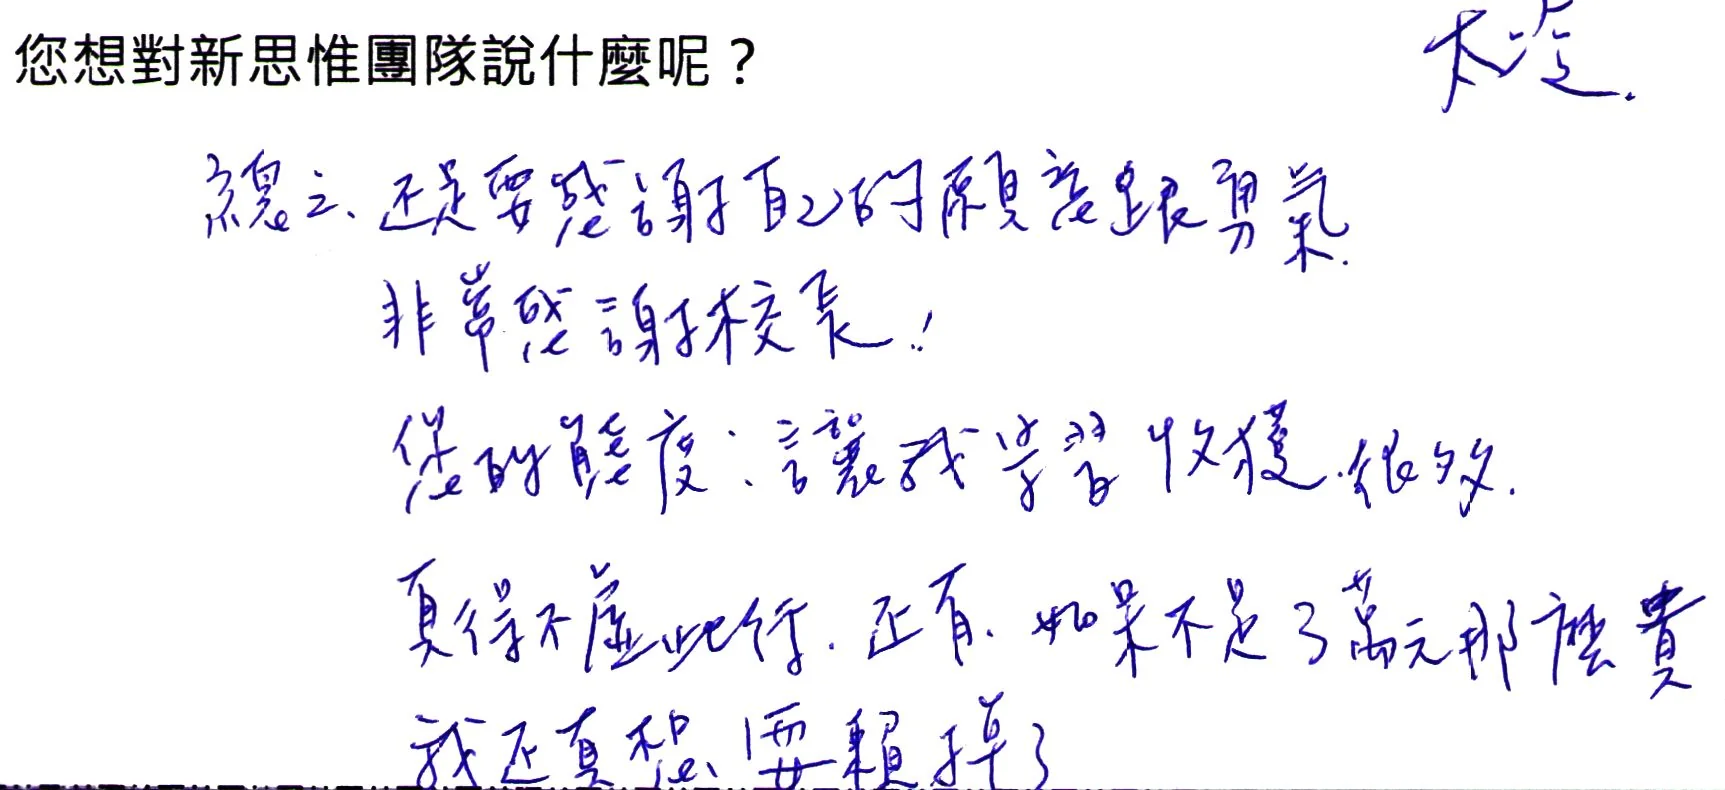 您想對新思惟團隊說什麼呢？
太冷.
總之、还是要感謝自己的願意跟勇氣.
非常感謝校長！
您的態度：讓我学習收獲很多.
真得不虛此行. 还有、如果不是3萬元那麼貴
我还真想耍賴掉了